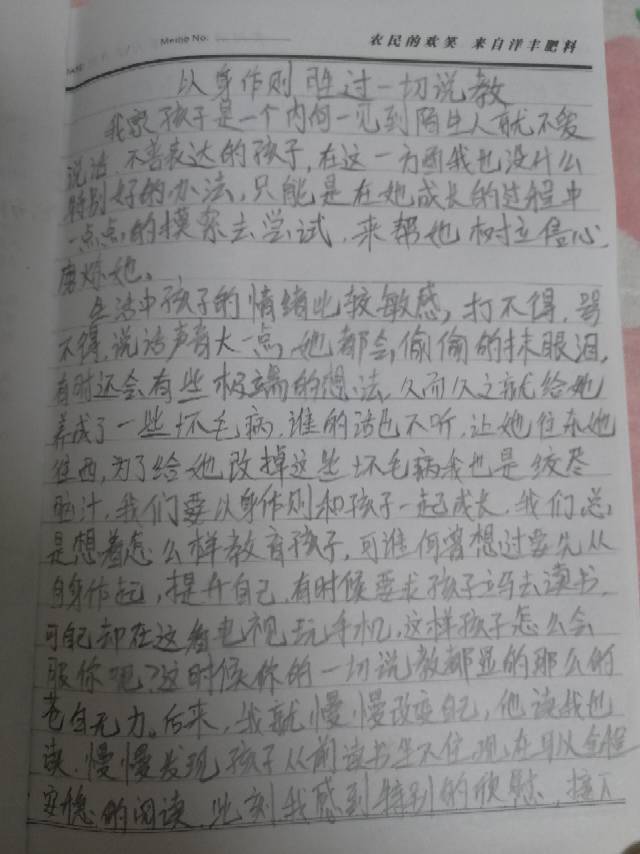 Memo No.
农民的欢笑 来自洋丰肥料
DATE
以身作则胜过一切说教
我家孩子是一个内向一见到陌生人就不爱
说话，不善表达的孩子，在这一方面我也没什么
特别好的办法，只能是在她成长的过程中
一点点的摸索去尝试，来帮她树立信心，
磨炼她。
生活中孩子的情绪比较敏感，打不得，骂
不得，说话声音大一点，她都会偷偷的抹眼泪，
有时还会有些极端的想法，久而久之就给她
养成了一些坏毛病，谁的话也不听，让她往东她
往西，为了给她改掉这些坏毛病我也是绞尽
脑汁，我们要以身作则和孩子一起成长，我们总
是想着怎么样教育孩子，可谁何曾想过要先从
自身作起，提升自己，有时候要求孩子去读书，
可自己却在这看电视玩手机，这样孩子怎么会
服你呢？这时候你的一切说教都显的那么的
苍白无力。后来，我就慢慢改变自己，他读我也
读，慢慢发现孩子从前读书坐不住，现在可以全程
安稳的阅读，此刻我感到特别的欣慰，接下